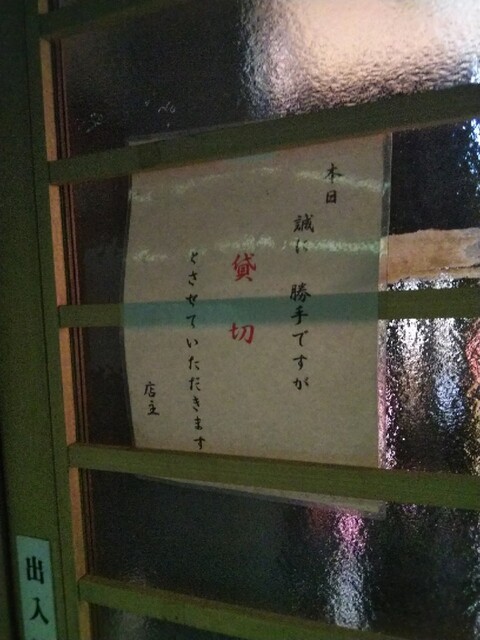 本日
誠に 勝手ですが
貸切
とさせていただきます
店主
出入